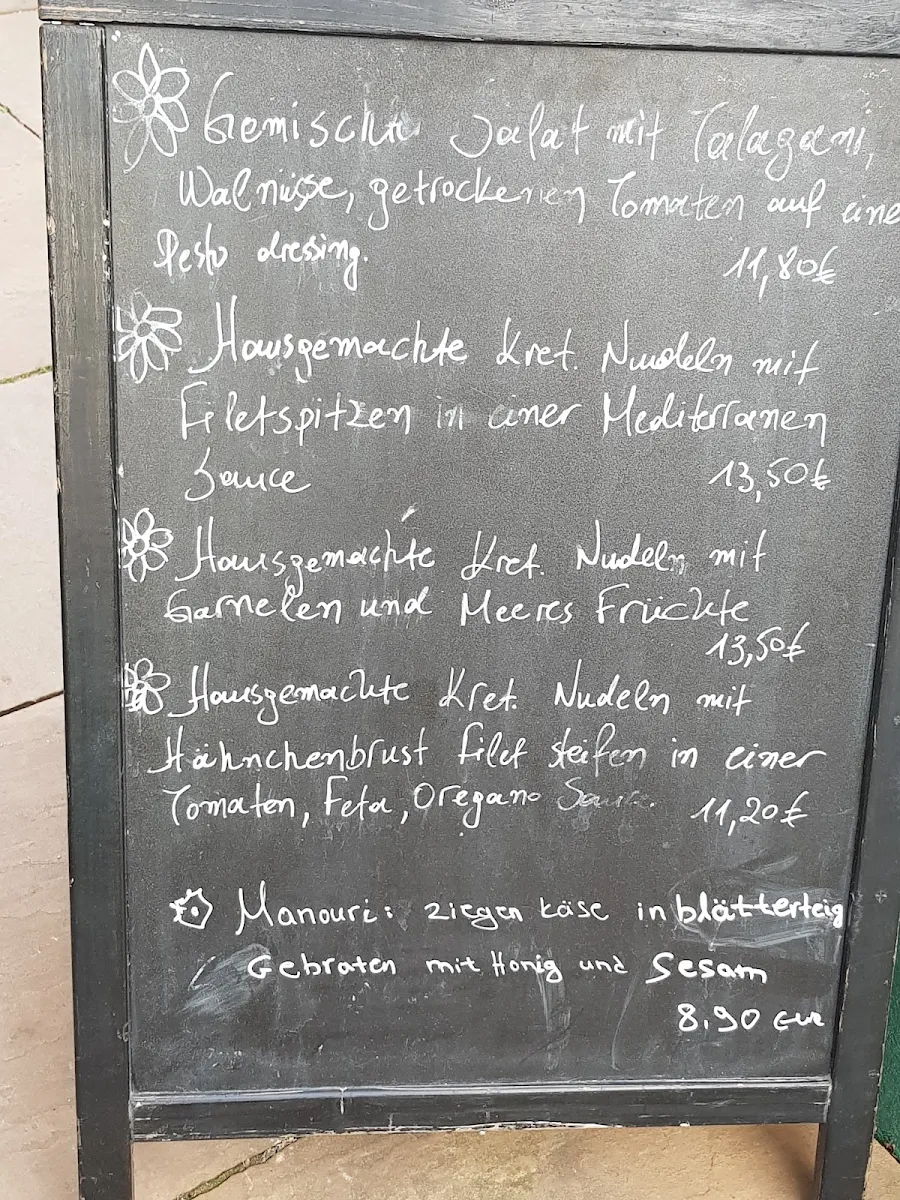 Gemischte Salat mit Talagani,
Walnüsse, getrockenen Tomaten auf eine
Pesto dressing. 11,80€
Hausgemachte Kret. Nudeln mit
Filetspitzen in einer Mediterranen
Sauce 13,50€
Hausgemachte Kret. Nudeln mit
Garnelen und Meeres Früchte
13,50€
Hausgemachte Kret. Nudeln mit
Hähnchenbrust Filet steifen in einer
Tomaten, Feta, Oregano Sauce. 11,20€
Manouri: ziegen käse in blätterteig
Gebraten mit Honig und Sesam
8.90 Eur